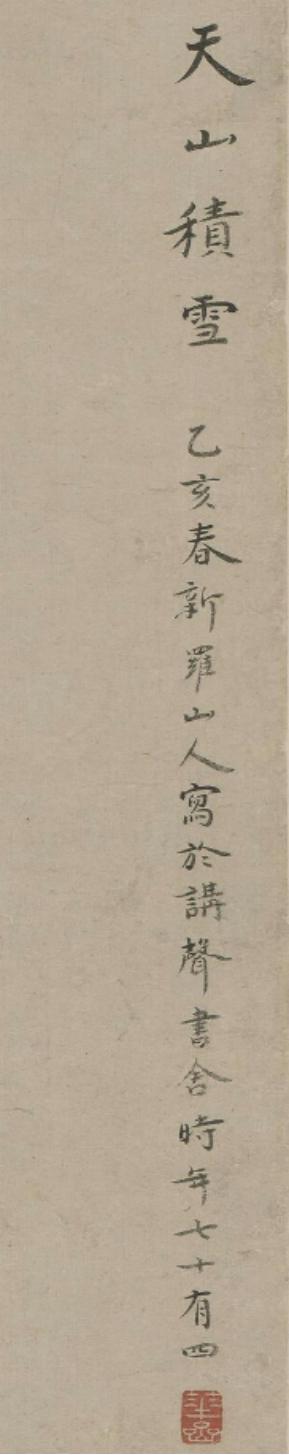 天山積雪 乙亥春新羅山人寫於講聲書舍時年七十有四
華嵒